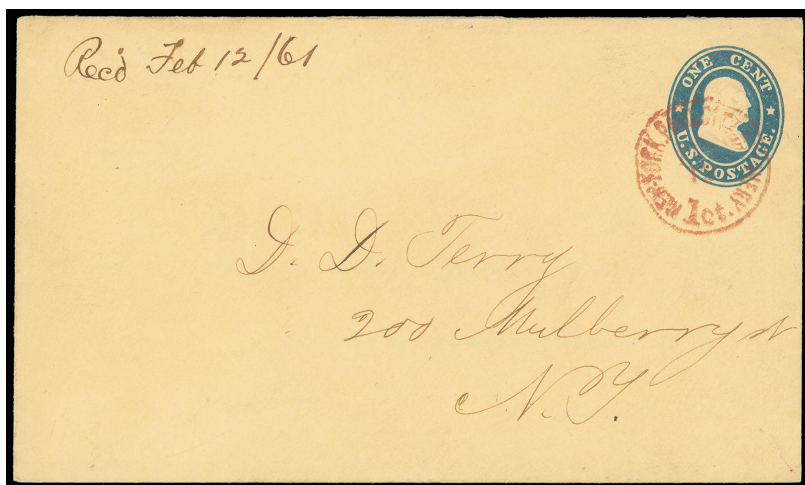 Rec'd Feb 12/61
ONE CENT
U.S. POSTAGE.
NEW-YORK.
1ct.
D. D. Terry
200 Mulberry st
N. Y.